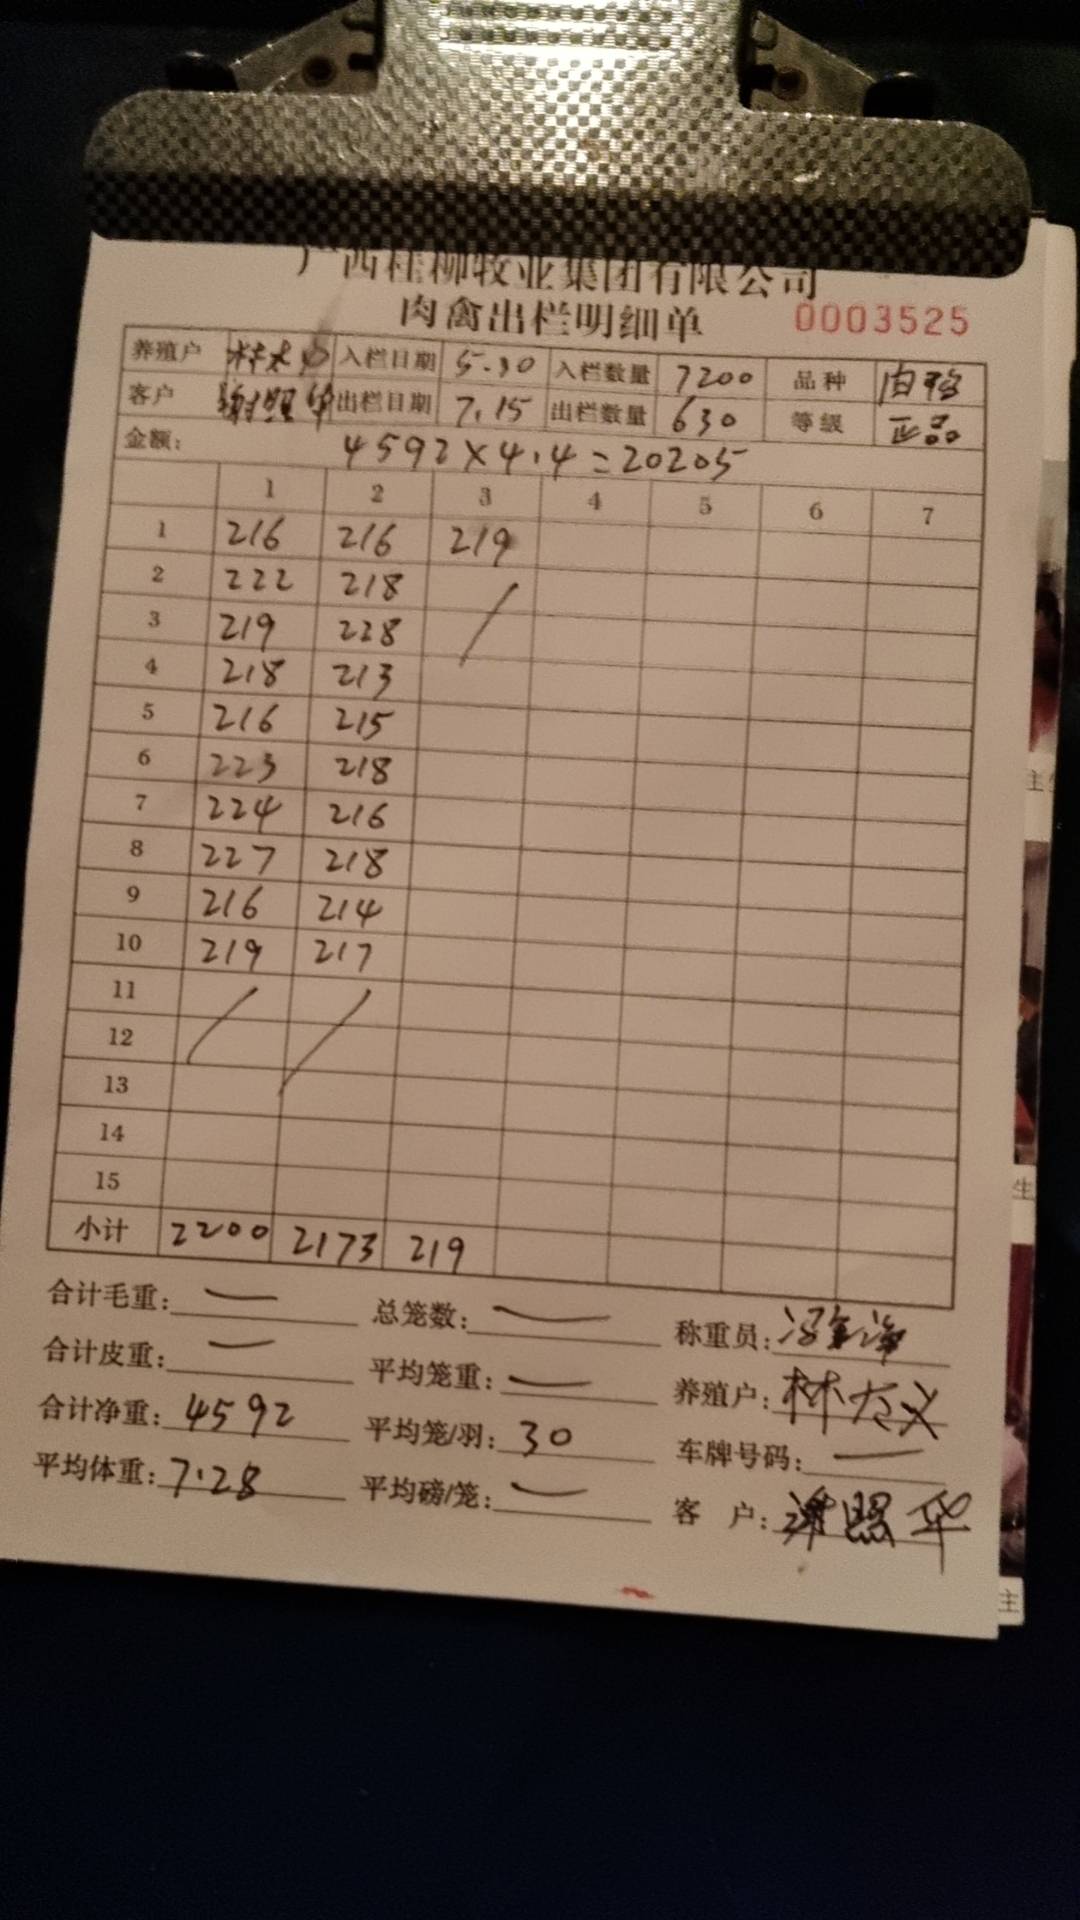 广西桂柳牧业集团有限公司
肉禽出栏明细单 0003525
养殖户 林太义 入栏日期 5.30 入栏数量 7200 品种 肉鸭
客户 谢照华 出栏日期 7.15 出栏数量 630 等级 正品
金额: 4592×4.4=20205
1 2 3 4 5 6 7
1 216 216 219
2 222 218
3 219 228
4 218 213
5 216 215
6 223 218
7 224 216
8 227 218
9 216 214
10 219 217
11
12
13
14
15
小计 2200 2173 219
合计毛重: — 总笼数: — 称重员:
合计皮重: — 平均笼重: — 养殖户: 林太义
合计净重: 4592 平均笼/羽: 30 车牌号码: —
平均体重: 7.28 平均磅/笼: — 客 户: 谢照华
主
生
主